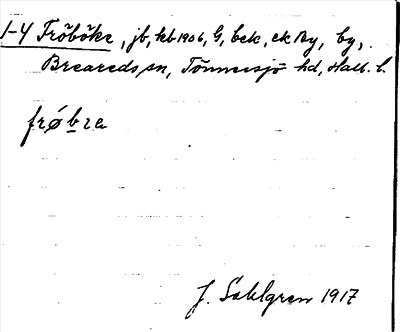 1-4 Fröböke, jb, kb 1906, G, bek, ek By, by,
Breareds sn, Tönnersjö hd, Hall. l.
frøbra
J. Sahlgren 1917